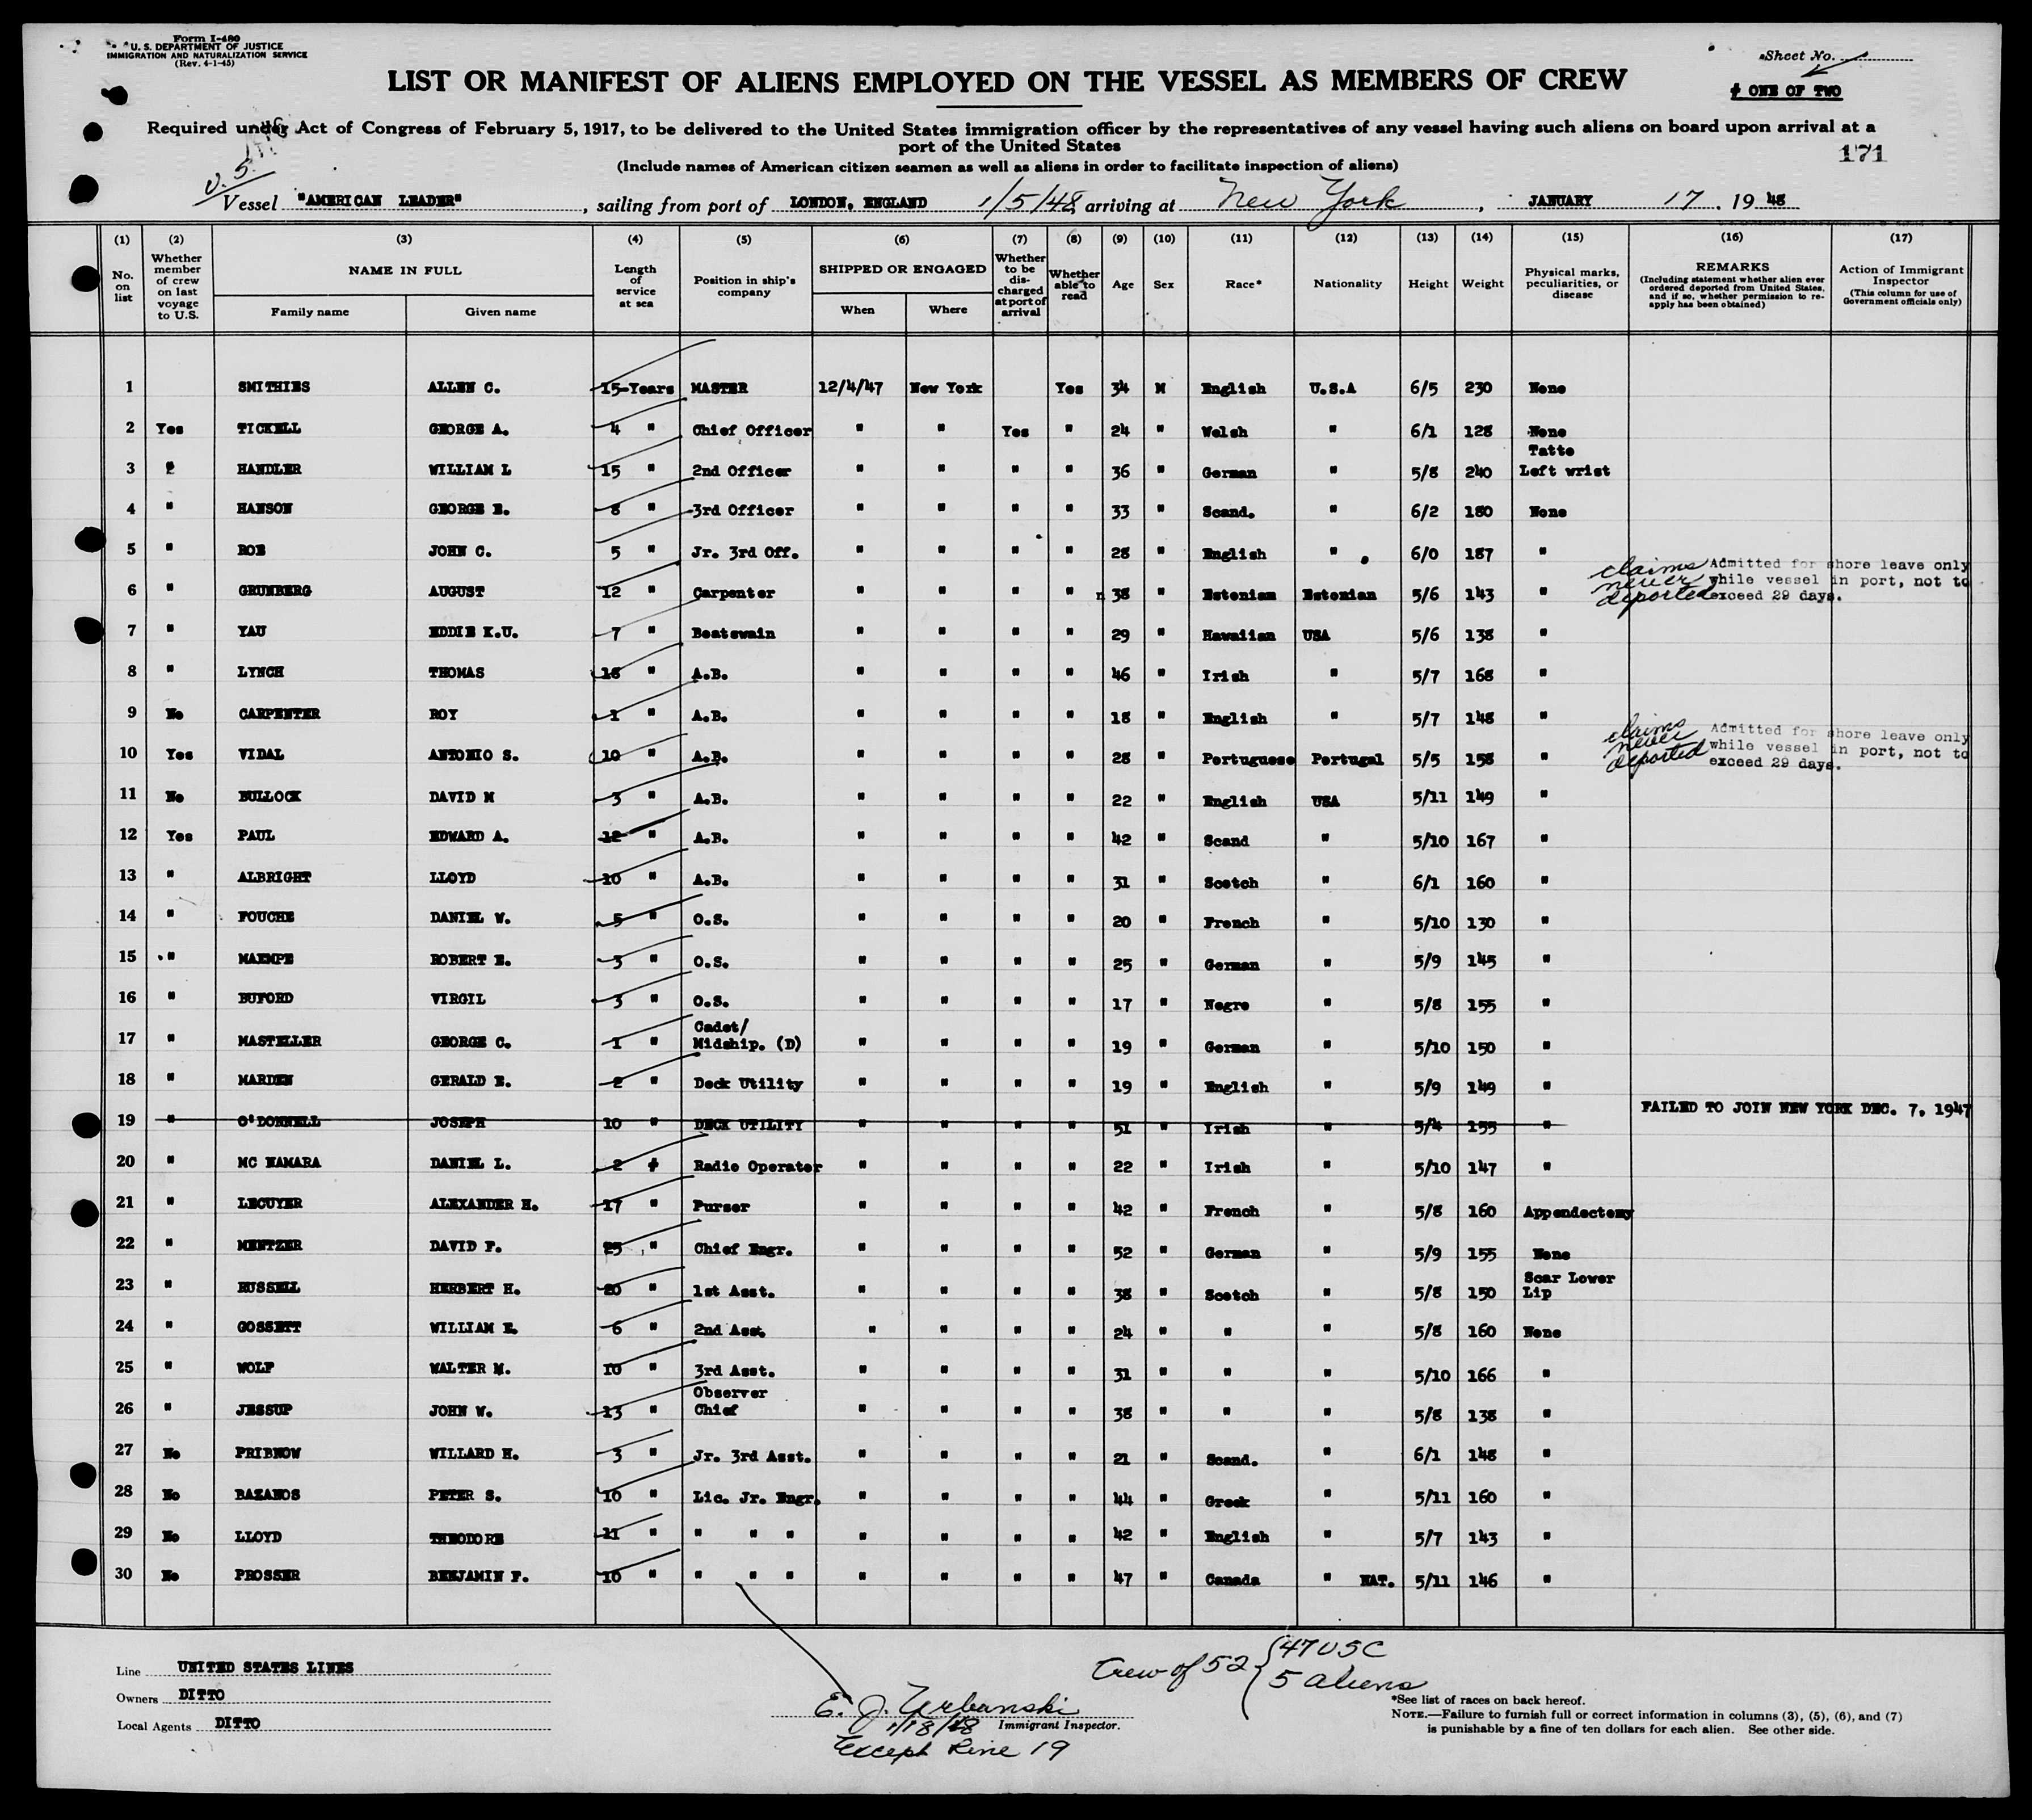 Form I-480
U. S. DEPARTMENT OF JUSTICE
IMMIGRATION AND NATURALIZATION SERVICE
(Rev. 4-1-45)
Sheet No.
LIST OR MANIFEST OF ALIENS EMPLOYED ON THE VESSEL AS MEMBERS OF CREW
# ONE OF TWO
Required under Act of Congress of February 5, 1917, to be delivered to the United States immigration officer by the representatives of any vessel having such aliens on board upon arrival at a
port of the United States
171
(Include names of American citizen seamen as well as aliens in order to facilitate inspection of aliens)
U. S.
Vessel "AMERICAN LEADER", sailing from port of LONDON, ENGLAND 1/5/48, arriving at New York, JANUARY 17, 1948
(1) (2) (3) (4) (5) (6) (7) (8) (9) (10) (11) (12) (13) (14) (15) (16) (17)
No. on list Whether member of crew on last voyage to U.S. NAME IN FULL Family name Given name Length of service at sea Position in ship's company SHIPPED OR ENGAGED When Where Whether to be discharged at port of arrival Whether able to read Age Sex Race* Nationality Height Weight Physical marks, peculiarities, or disease REMARKS (Including statement whether alien ever ordered deported from United States, and if so, whether permission to reapply has been obtained) Action of Immigrant Inspector (This column for use of Government officials only)
1 SMITHIES ALLEN C. 15-Years MASTER 12/4/47 New York Yes 34 M English U.S.A 6/5 230 None
2 Yes TICKELL GEORGE A. 4 " Chief Officer " " Yes " 24 " Welsh " 6/1 128 None
3 " HANDLER WILLIAM L 15 " 2nd Officer " " " " 36 " German " 5/8 240 Tatto Left wrist
4 " HANSON GEORGE E. 8 " 3rd Officer " " " " 33 " Scand. " 6/2 180 None
5 " ROE JOHN C. 5 " Jr. 3rd Off. " " " " 28 " English " 6/0 187 "
6 " GRUNBERG AUGUST 12 " Carpenter " " " " 38 " Estonian Estonian 5/6 143 " claims never deported Admitted for shore leave only while vessel in port, not to exceed 29 days.
7 " YAU EDDIE K.U. 7 " Boatswain " " " " 29 " Hawaiian USA 5/6 138 "
8 " LYNCH THOMAS 18 " A.B. " " " " 46 " Irish " 5/7 168 "
9 No CARPENTER ROY 1 " A.B. " " " " 18 " English " 5/7 148 "
10 Yes VIDAL ANTONIO S. 10 " A.B. " " " " 28 " Portuguese Portugal 5/5 158 " claims never deported Admitted for shore leave only while vessel in port, not to exceed 29 days.
11 No BULLOCK DAVID M 3 " A.B. " " " " 22 " English USA 5/11 149 "
12 Yes PAUL EDWARD A. 12 " A.B. " " " " 42 " Scand " 5/10 167 "
13 " ALBRIGHT LLOYD 10 " A.B. " " " " 31 " Scotch " 6/1 160 "
14 " FOUCHE DANIEL W. 5 " O.S. " " " " 20 " French " 5/10 130 "
15 " MAEMPE ROBERT E. 3 " O.S. " " " " 25 " German " 5/9 145 "
16 " BUFORD VIRGIL 3 " O.S. " " " " 17 " Negro " 5/8 155 "
17 " MASTELLER GEORGE C. 1 " Cadet/ Midship. (D) " " " " 19 " German " 5/10 150 "
18 " MARDEN GERALD E. 2 " Deck Utility " " " " 19 " English " 5/9 149 "
19 " O'DONNELL JOSEPH 10 " DECK UTILITY " " " " 51 " Irish " 5/4 155 " FAILED TO JOIN NEW YORK DEC. 7, 1947
20 " MC NAMARA DANIEL L. 2 " Radio Operator " " " " 22 " Irish " 5/10 147 "
21 " LECUYER ALEXANDER H. 17 " Purser " " " " 42 " French " 5/8 160 Appendectomy
22 " MENTZER DAVID F. 25 " Chief Engr. " " " " 52 " German " 5/9 155 None
23 " RUSSELL HERBERT H. 20 " 1st Asst. " " " " 38 " Scotch " 5/8 150 Scar Lower Lip
24 " GOSSETT WILLIAM E. 6 " 2nd Asst. " " " " 24 " " " 5/8 160 None
25 " WOLF WALTER M. 10 " 3rd Asst. " " " " 31 " " " 5/10 166 "
26 " JESSUP JOHN W. 13 " Observer Chief " " " " 38 " " " 5/8 138 "
27 No PRIBNOW WILLARD H. 3 " Jr. 3rd Asst. " " " " 21 " Scand. " 6/1 148 "
28 No BAZANOS PETER S. 10 " Lic. Jr. Engr. " " " " 44 " Greek " 5/11 160 "
29 No LLOYD THEODORE 11 " " " " " " " " 42 " English " 5/7 143 "
30 No PROSSER BENJAMIN F. 10 " " " " " " " " 47 " Canada " NAT. 5/11 146 "
Line UNITED STATES LINES
Owners DITTO
Local Agents DITTO
Crew of 52 { 47 USC
5 aliens
E. J. Urbanski
1/18/48 Immigrant Inspector.
Except Line 19
*See list of races on back hereof.
NOTE.—Failure to furnish full or correct information in columns (3), (5), (6), and (7)
is punishable by a fine of ten dollars for each alien. See other side.